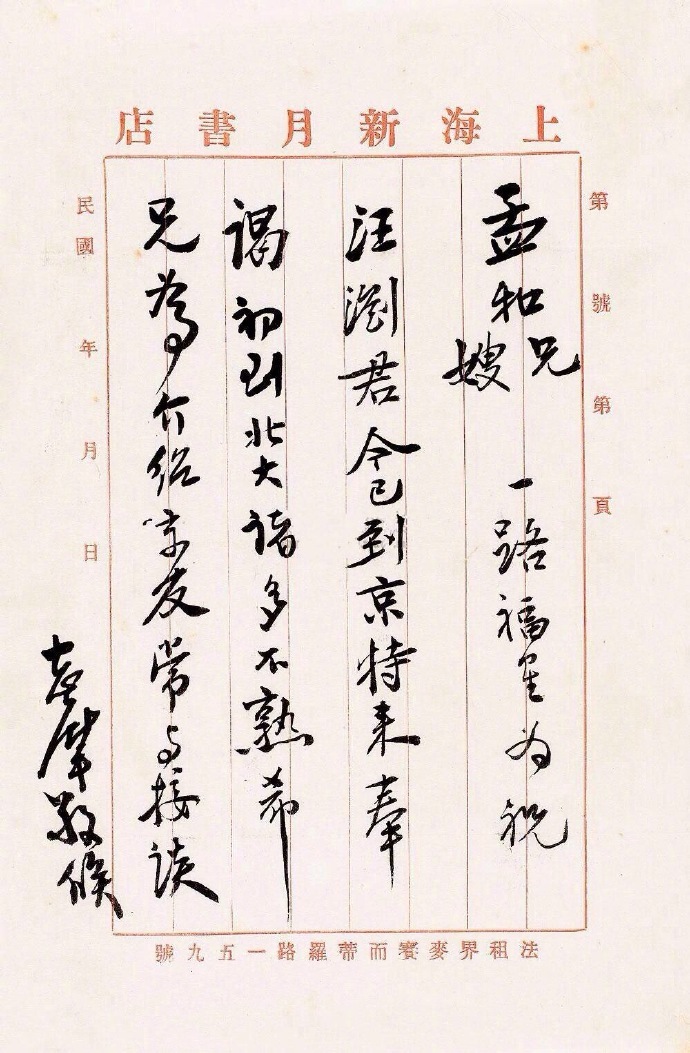 上海新月書店
第 號 第 頁
孟和兄嫂 一路福星为祝
汪瀏君今已到京特来奉
謁初到北大諸多不熟希
兄為介紹京友常与接談
志摩敬候
民國 年 月 日
法租界麥賽而蒂羅路一五九號